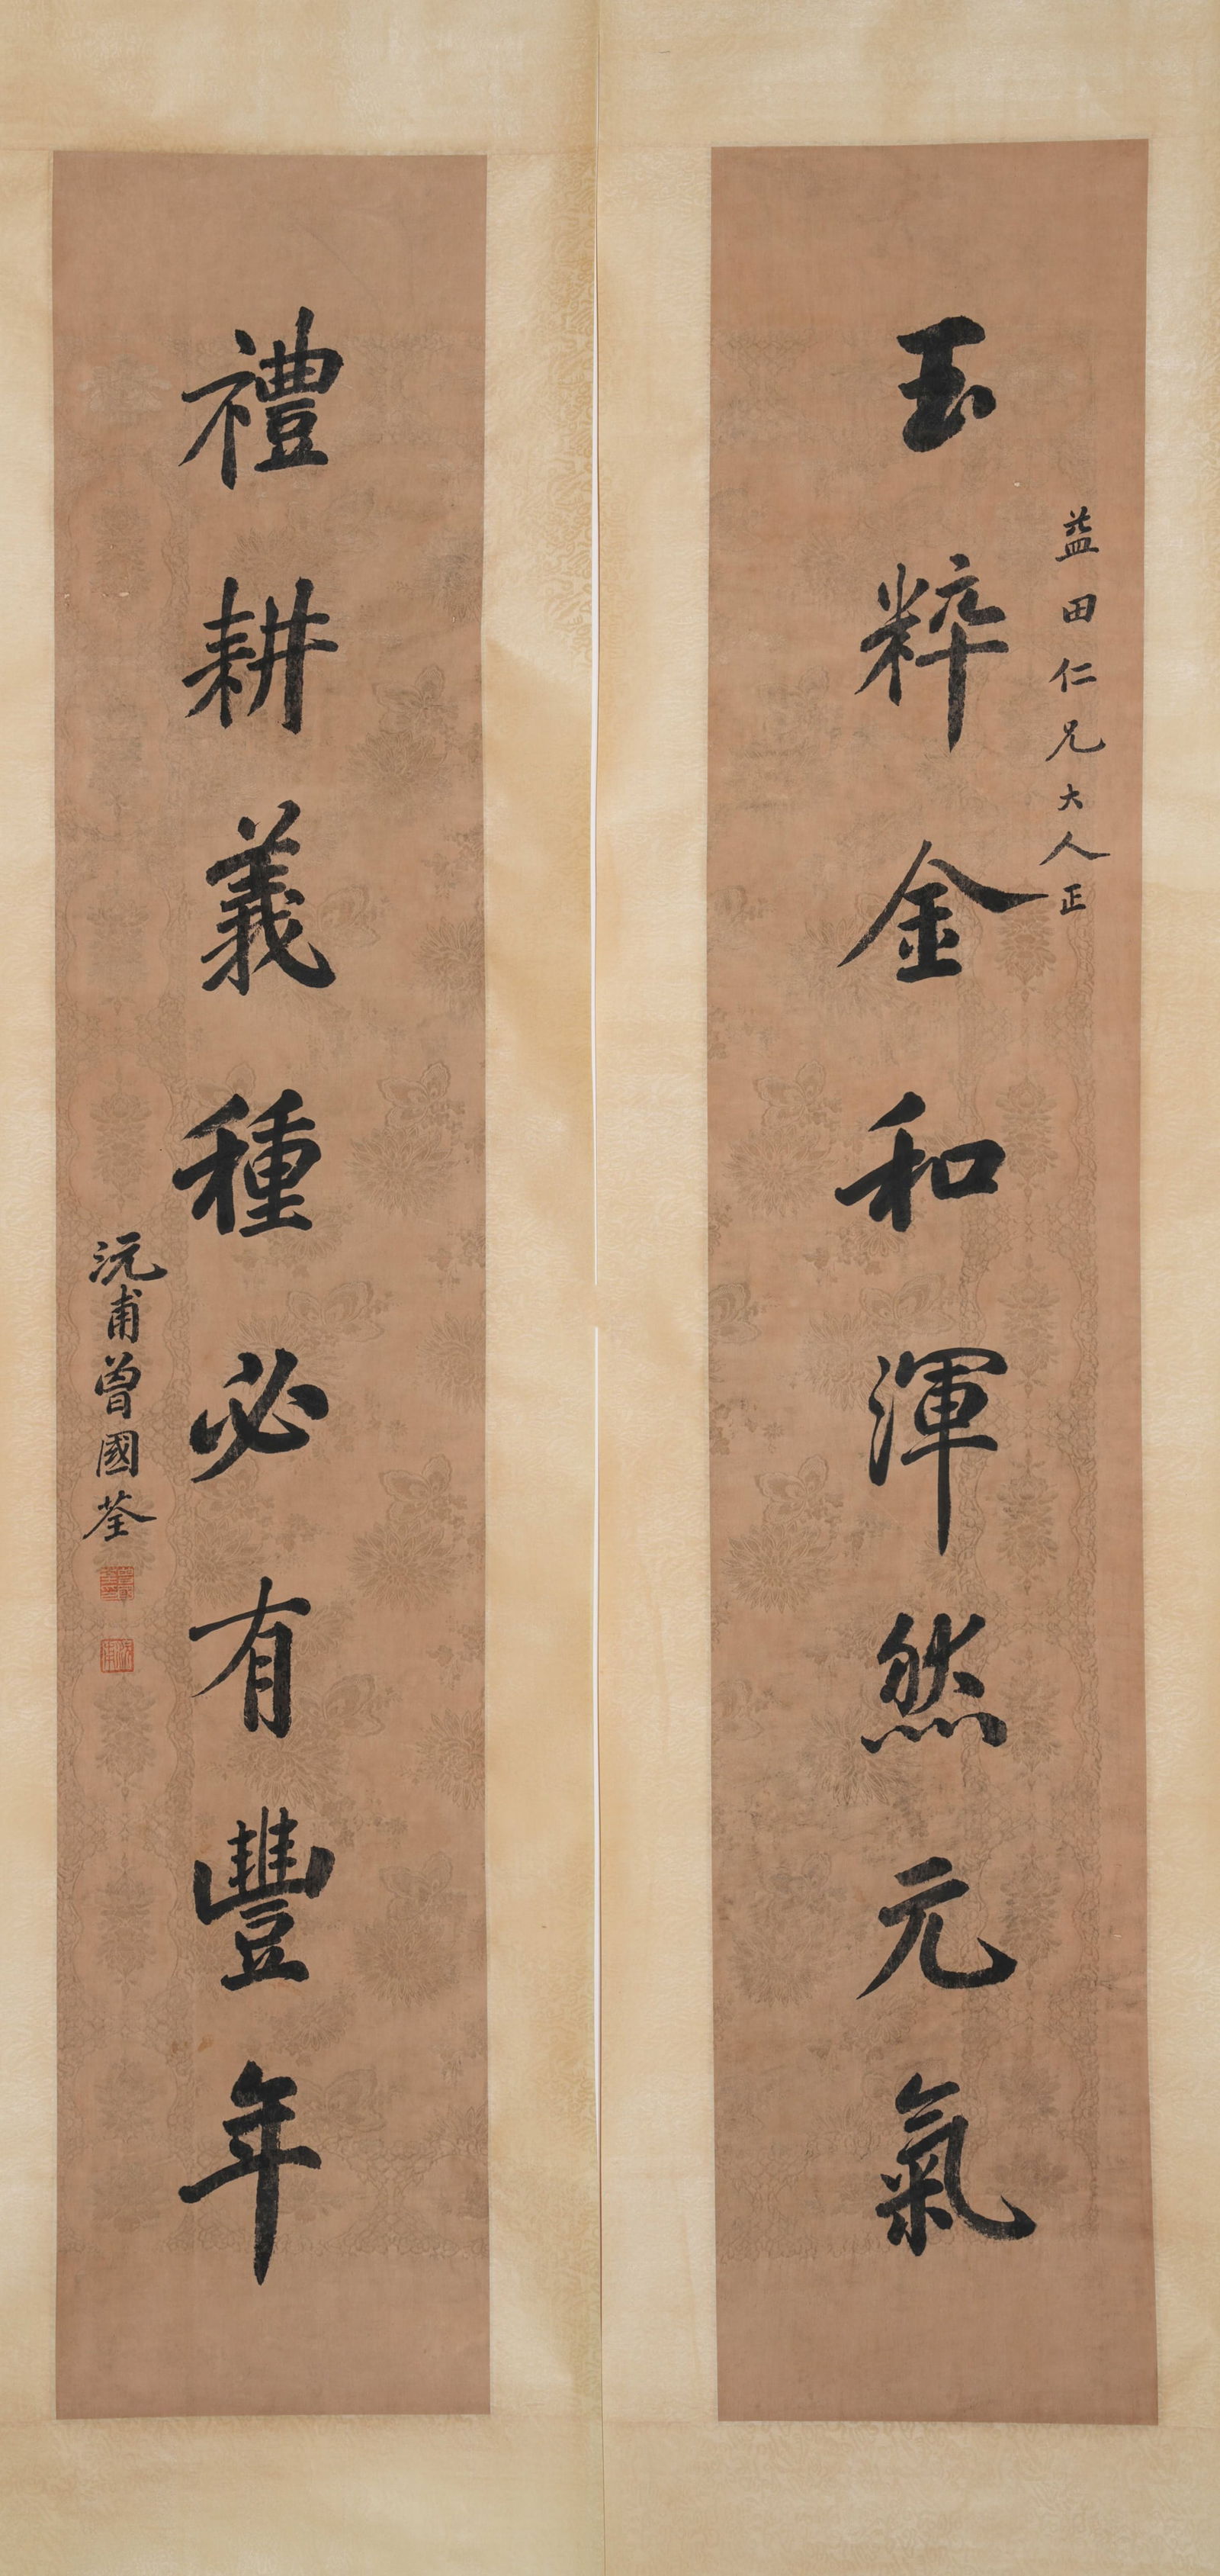 益田仁兄大人正
玉粹金和渾然元氣
禮耕義種必有豐年
沅甫曾國荃